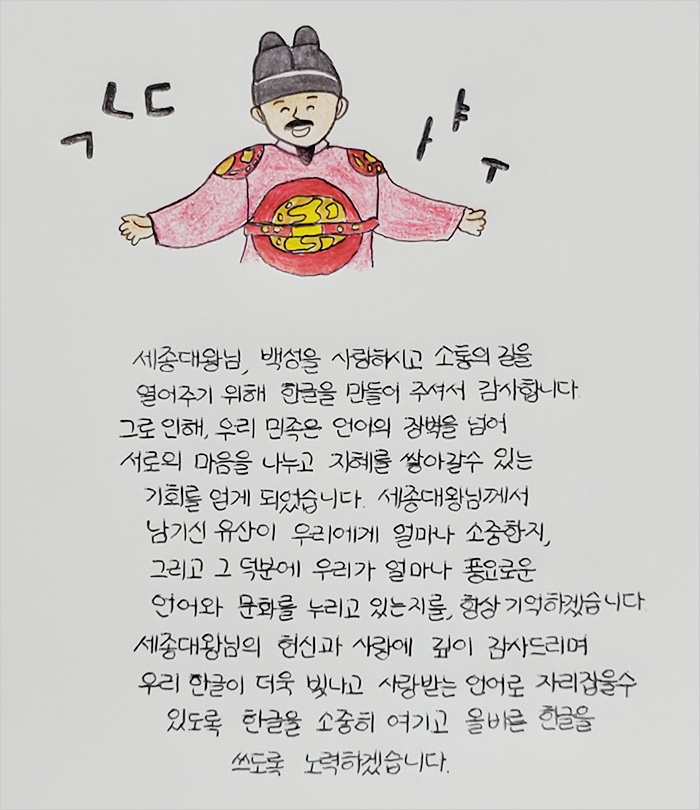 ㄱㄴㄷ ㅏㅑㅜ
세종대왕님, 백성을 사랑하시고 소통의 길을
열어주기 위해 한글을 만들어 주셔서 감사합니다.
그로 인해, 우리 민족은 언어의 장벽을 넘어
서로의 마음을 나누고 지혜를 쌓아갈수 있는
기회를 얻게 되었습니다. 세종대왕님께서
남기신 유산이 우리에게 얼마나 소중한지,
그리고 그 덕분에 우리가 얼마나 풍요로운
언어와 문화를 누리고 있는지를, 항상 기억하겠습니다.
세종대왕님의 헌신과 사랑에 깊이 감사드리며
우리 한글이 더욱 빛나고 사랑받는 언어로 자리잡을수
있도록 한글을 소중히 여기고 올바른 한글을
쓰도록 노력하겠습니다.